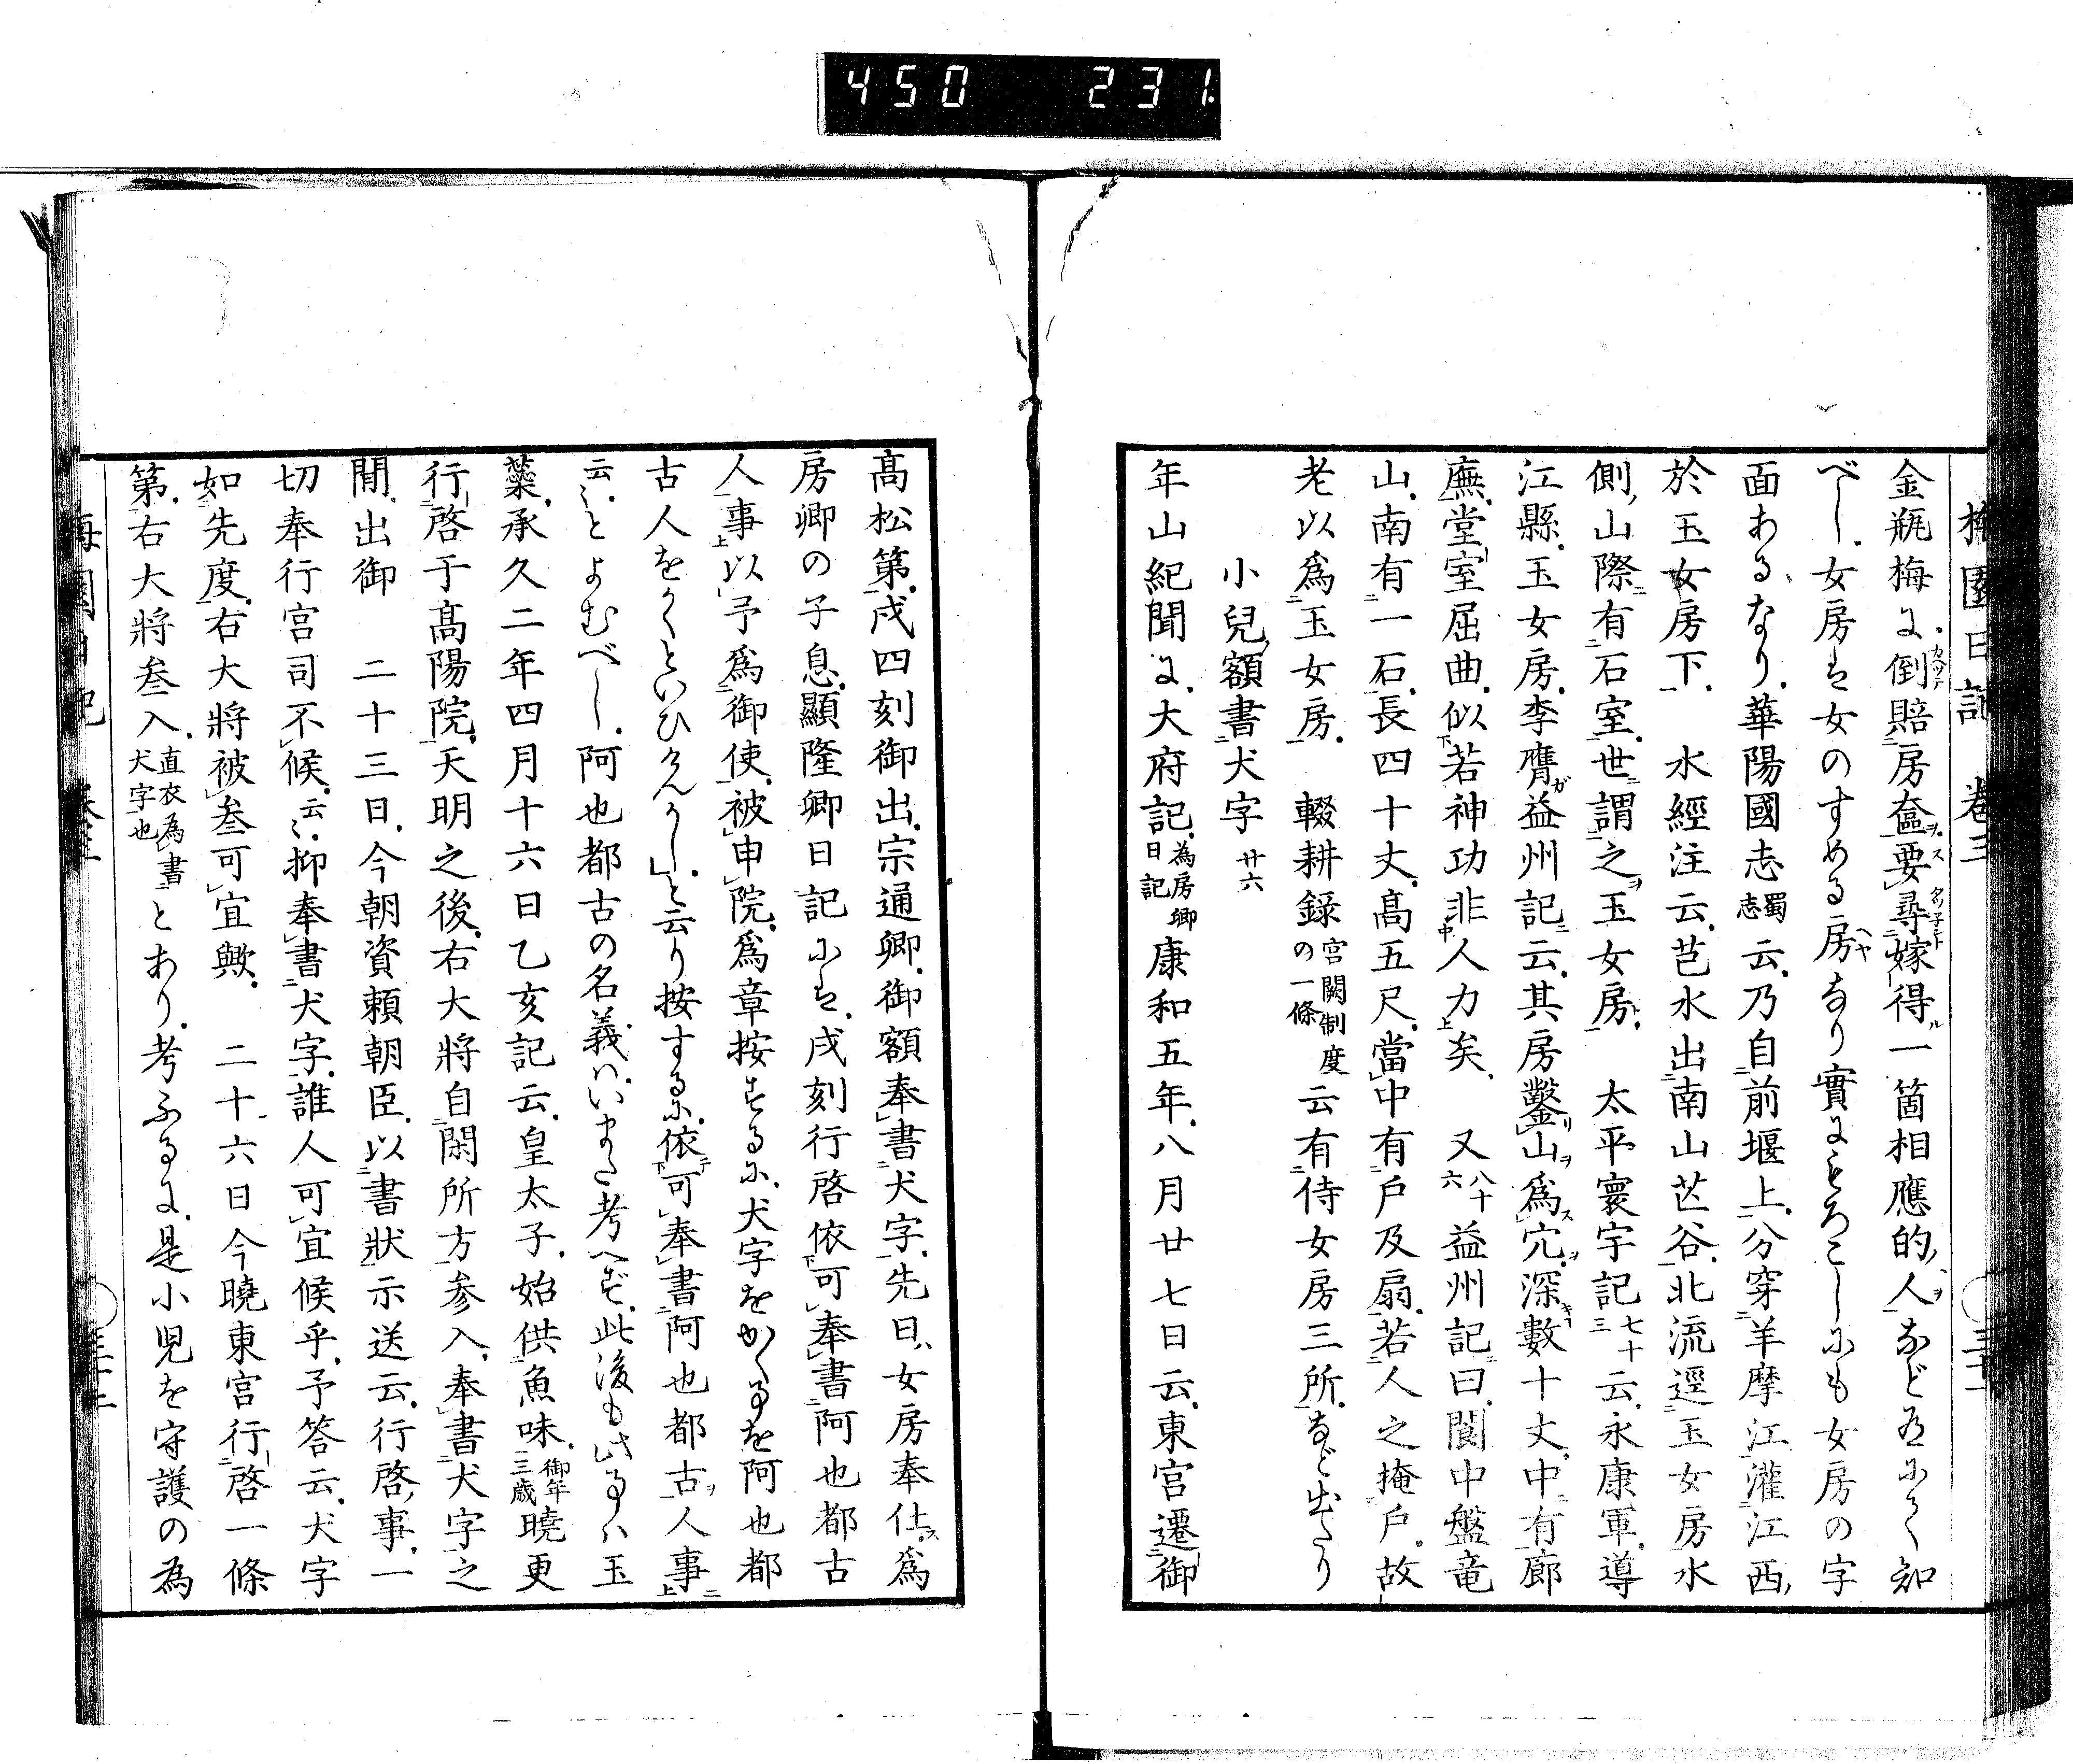 450 231.
梅園日記 卷三
金瓶梅に、倒賠房奩要尋嫁得一箇相應的人などあるにて知
べし、女房は女のすめる房なり實にもろこしにも女房の字
面あるなり、華陽國志蜀志云、乃自前堰上分穿羊摩江灌江西、
於玉女房下、 水經注云、苞水出南山芒谷、北流逕玉女房水
側、山際有石室、世謂之玉女房、 太平寰宇記七十三云、永康軍導
江縣、玉女房、李膺益州記云、其房鑿山爲穴、深數十丈、中有廊
廡、堂室屈曲、似若神功非人力矣、 又八十六益州記曰、閬中盤竜
山、南有一石、長四十丈、高五尺、當中有戶及扇、若人之掩戶、故
老以爲玉女房、 輟耕錄宮闕制度の一條云有侍女房三所などあり
小兒額書犬字 廿六
年山紀聞に、大府記、為房卿日記康和五年、八月廿七日云、東宮遷御
高松第、戌四刻御出、宗通卿、御額奉書犬字、先日、女房奉仕、爲
房卿の子息、顯隆卿日記には、戌刻行啓依可奉書阿也都古
人事以予爲御使、被申院、爲章按ずるに、犬字をかくるを阿也都
古人をかくといひけんかし、と云り按するに、依可奉書阿也都古人事
云〻、とよむべし、阿也都古の名義は、いまだ考へず、此後も此事は玉
蘂、承久二年四月十六日乙亥記云、皇太子、始供魚味、御年三歳曉更
行啓于高陽院、天明之後、右大將自閑所方参入、奉書犬字之
間、出御 二十三日、今朝資頼朝臣、以書狀示送云、行啓事、一
切奉行宮司不候、云〻、抑奉書犬字、誰人可宜候乎、予答云、犬字
如先度、右大將被叁可宜歟、 二十六日今曉東宮行啓一條
第、右大將叁入、直衣為書犬字也とあり、考ふるに、是小児を守護の為